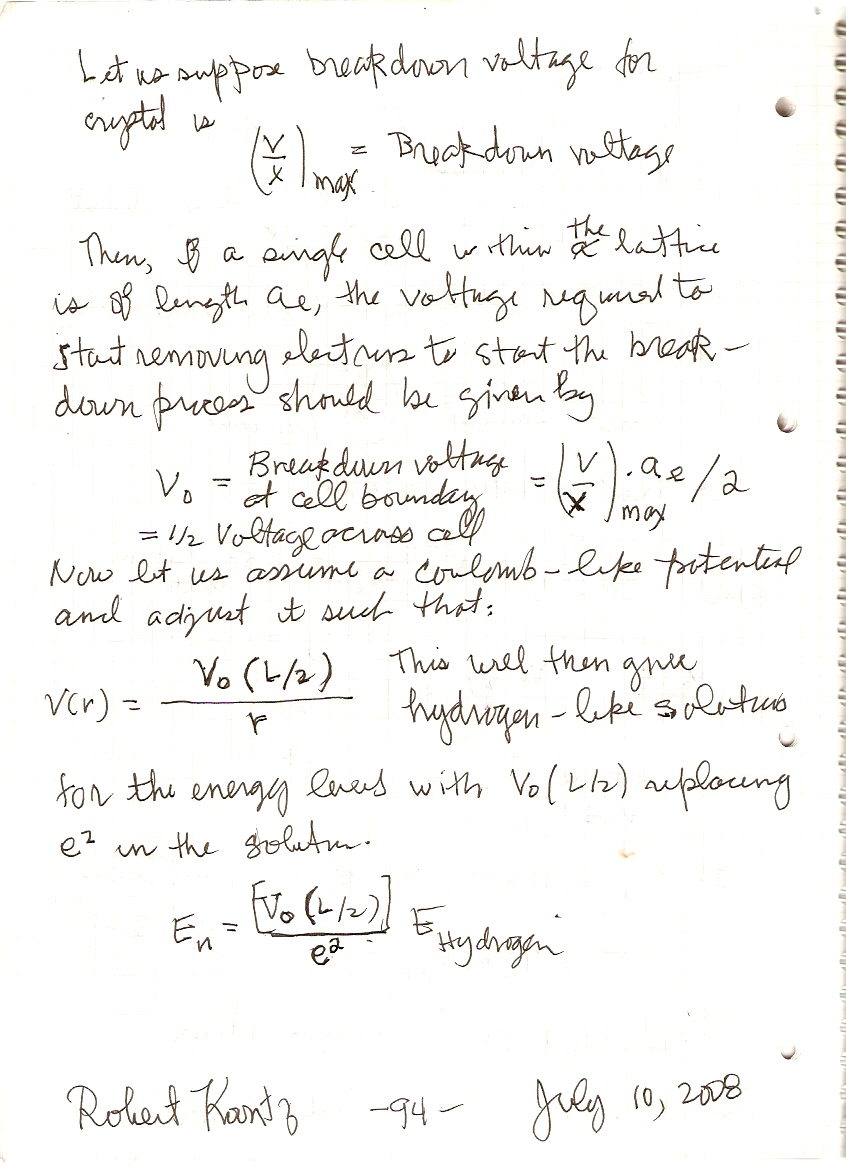 Let us suppose breakdown voltage for
crystal is
(V/x)max = Breakdown voltage
Then, if a single cell within the lattice
is of length ae, the voltage required to
start removing electrons to start the break-
down process should be given by
V₀ = Breakdown voltage at cell boundary = (V/x)max · ae/2
= 1/2 Voltage across cell
Now let us assume a Coulomb-like potential
and adjust it such that:
V(r) = V₀(L/2)/r This will then give
hydrogen-like solutions
for the energy levels with V₀(L/2) replacing
e² in the solution.
En = [V₀(L/2)]/e² E Hydrogen
Robert Kantz -94- July 10, 2008